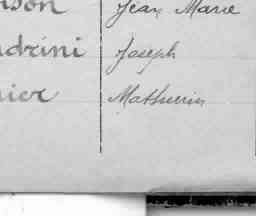 nson Jean Marie
ndrini Joseph
nier Mathurin